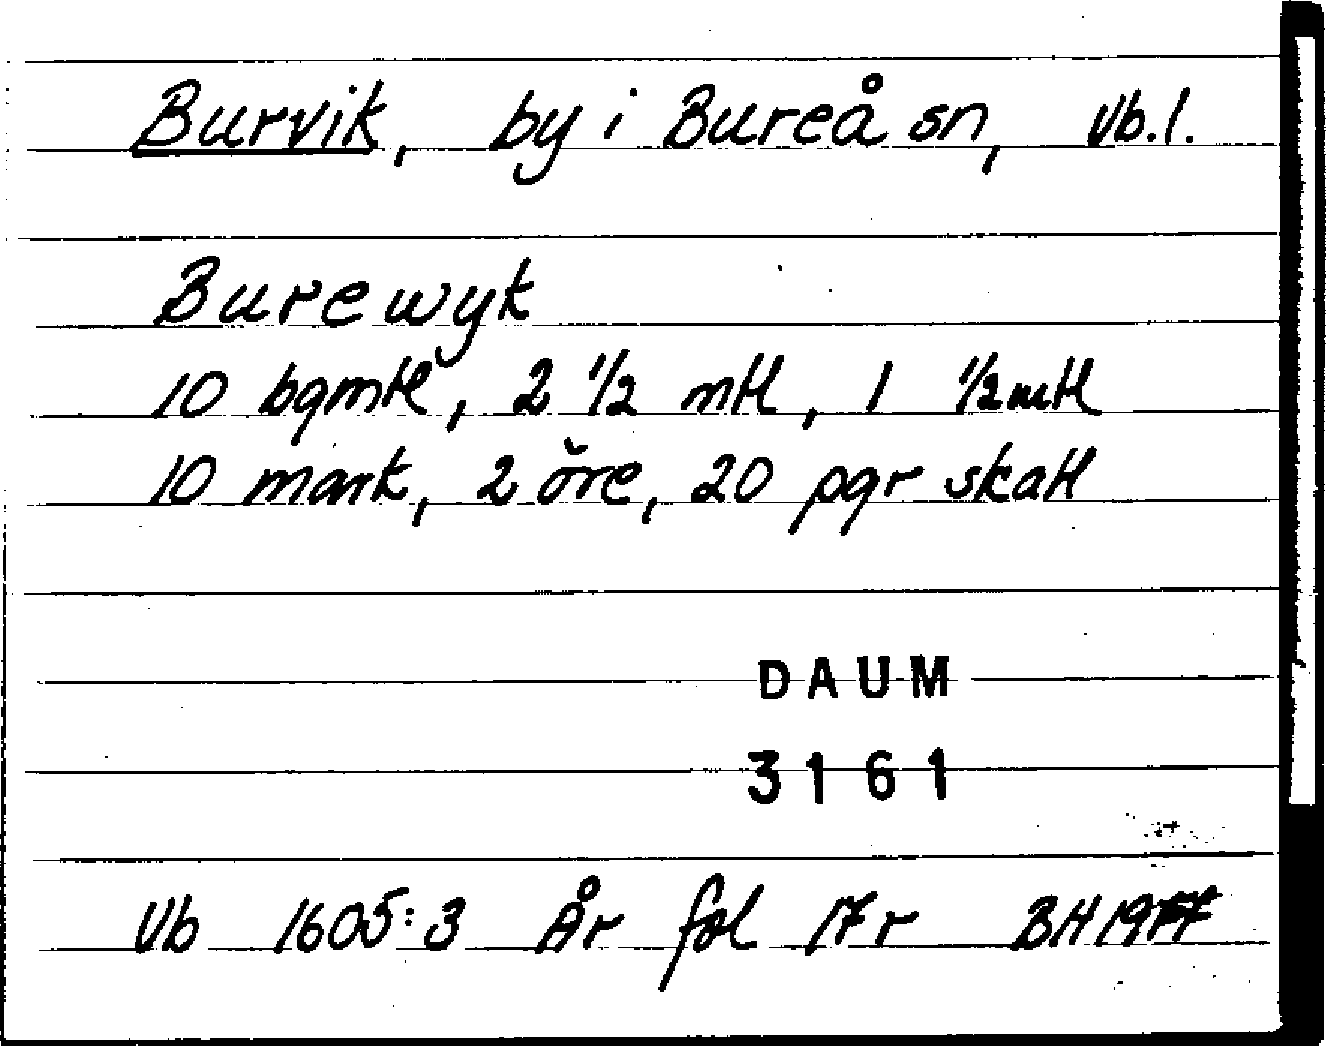 Burvik, by i Bureå sn, Vb.l.
Burewyk
10 bgmtl, 2 1/2 mtl, 1 1/2 mtl
10 mark, 2 öre, 20 pgr skatt
DAUM
3161
Vb 1605:3 År fol 17r BH 1977